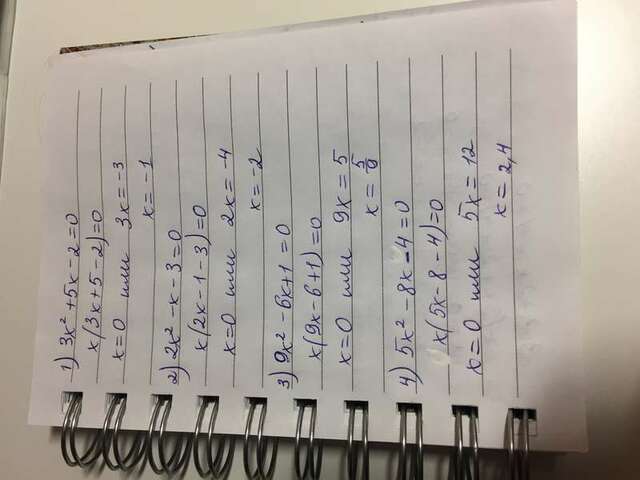 1) 3x² + 5x - 2 = 0
x(3x + 5 - 2) = 0
x = 0 или 3x = -3
x = -1
2) 2x² - x - 3 = 0
x(2x - 1 - 3) = 0
x = 0 или 2x = -4
x = -2
3) 9x² - 6x + 1 = 0
x(9x - 6 + 1) = 0
x = 0 или 9x = 5
x = 5/9
4) 5x² - 8x - 4 = 0
x(5x - 8 - 4) = 0
x = 0 или 5x = 12
x = 2,4